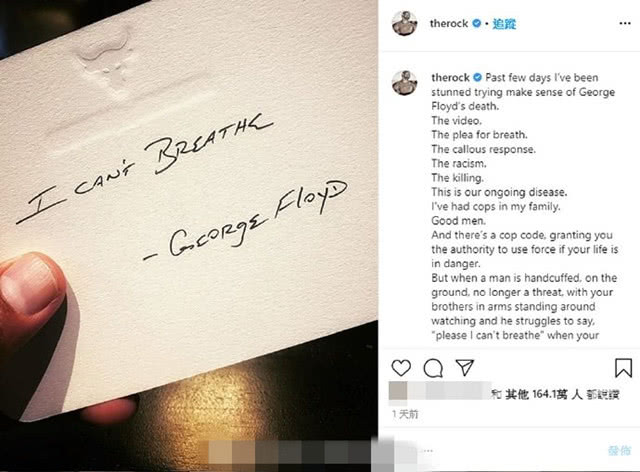 I CAN'T BREATHE
- GEORGE FLOYD
therock • 追蹤
therock Past few days I've been
stunned trying make sense of George
Floyd's death.
The video.
The plea for breath.
The callous response.
The racism.
The killing.
This is our ongoing disease.
I've had cops in my family.
Good men.
And there's a cop code, granting you
the authority to use force if your life is
in danger.
But when a man is handcuffed, on the
ground, no longer a threat, with your
brothers in arms standing around
watching and he struggles to say,
"please I can't breathe" when your
和 其他 164.1萬 人 都說讚
1 天前
發佈